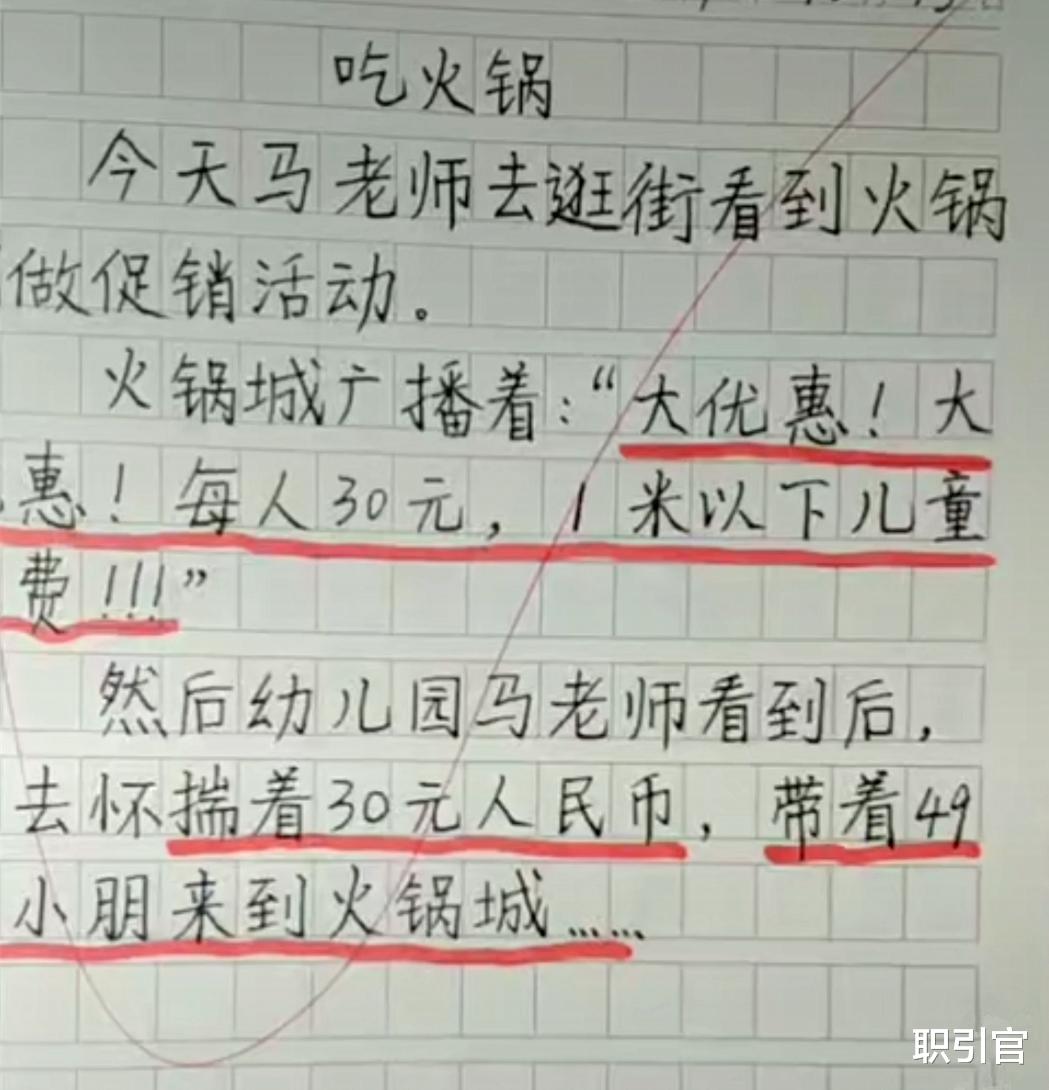 吃火锅
今天马老师去逛街看到火锅
做促销活动。
火锅城广播着：“大优惠！大
惠！每人30元，1米以下儿童
费!!!”
然后幼儿园马老师看到后，
去怀揣着30元人民币，带着49
小朋来到火锅城……
职引官